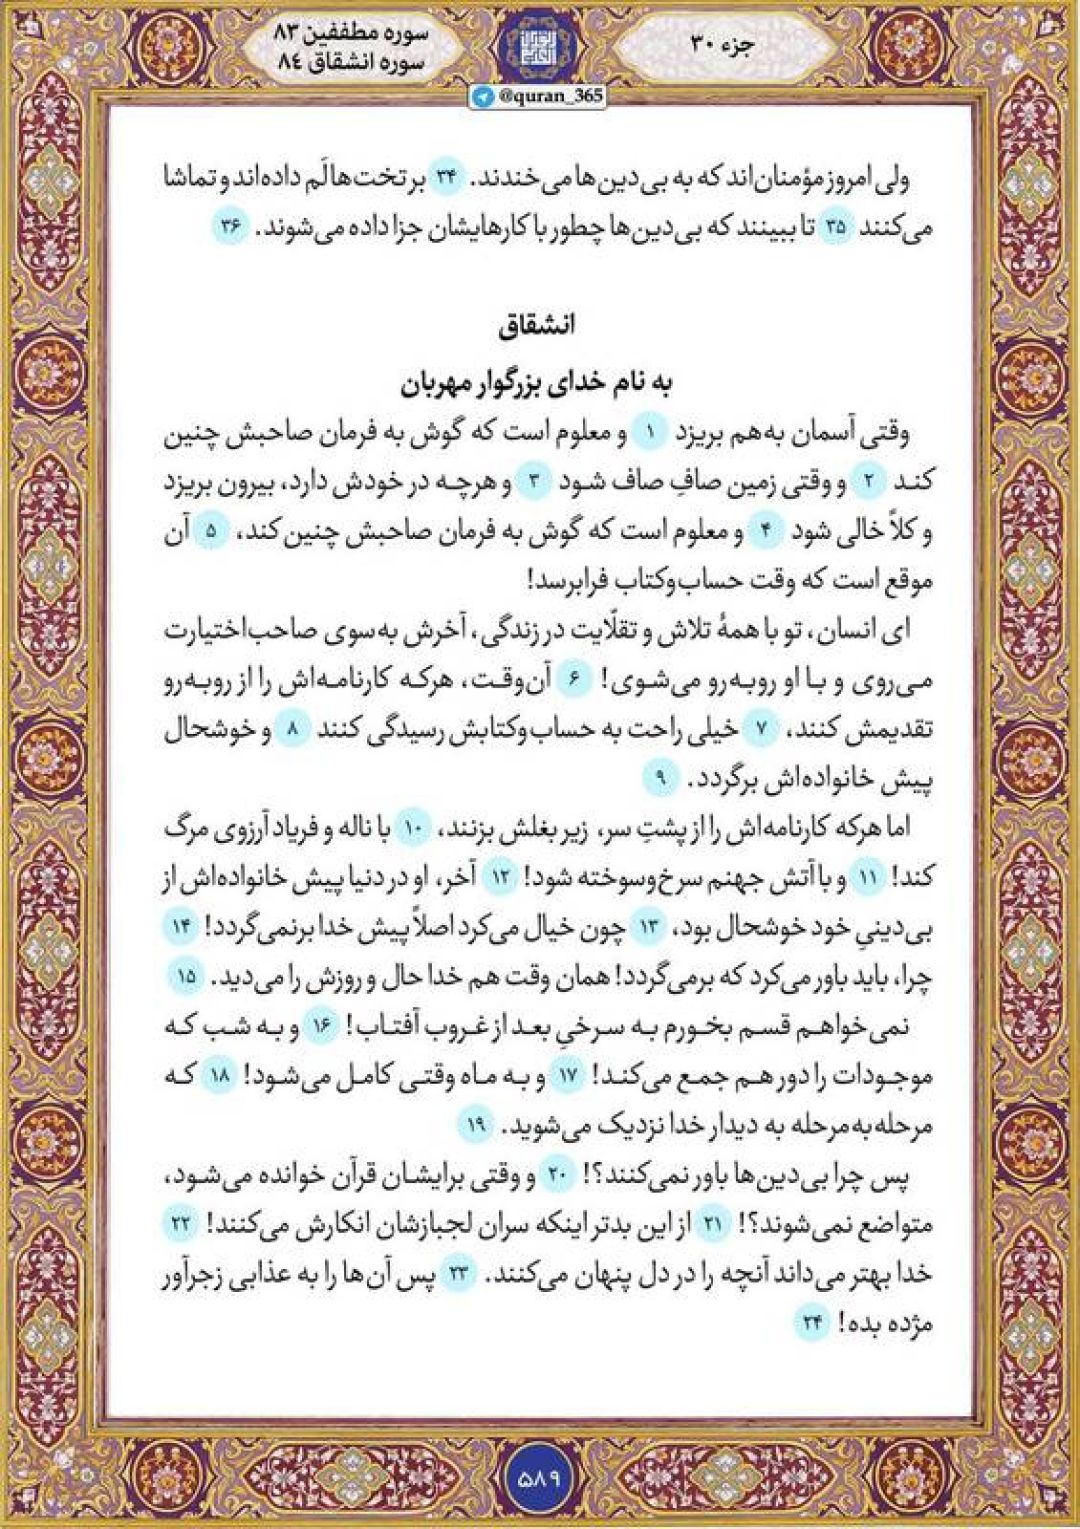 جزء ۳۰
سوره مطففین ۸۳
سوره انشقاق ۸٤
@quran_365
ولی امروز مؤمنان‌اند که به بی‌دین‌ها می‌خندند. ۳۴ بر تخت‌ها لَم داده‌اند و تماشا
می‌کنند ۳۵ تا ببینند که بی‌دین‌ها چطور با کارهایشان جزا داده می‌شوند. ۳۶
انشقاق
به نام خدای بزرگوار مهربان
وقتی آسمان به‌هم بریزد ۱ و معلوم است که گوش به فرمان صاحبش چنین
کند ۲ و وقتی زمین صافِ صاف شود ۳ و هرچه در خودش دارد، بیرون بریزد
و کلاً خالی شود ۴ و معلوم است که گوش به فرمان صاحبش چنین کند، ۵ آن
موقع است که وقت حساب‌وکتاب فرابرسد!
ای انسان، تو با همهٔ تلاش و تقلّایت در زندگی، آخرش به‌سوی صاحب‌اختیارت
می‌روی و با او روبه‌رو می‌شوی! ۶ آن‌وقت، هرکه کارنامه‌اش را از روبه‌رو
تقدیمش کنند، ۷ خیلی راحت به حساب‌وکتابش رسیدگی کنند ۸ و خوشحال
پیش خانواده‌اش برگردد. ۹
اما هرکه کارنامه‌اش را از پشتِ سر، زیر بغلش بزنند، ۱۰ با ناله و فریاد آرزوی مرگ
کند! ۱۱ و با آتش جهنم سرخ‌وسوخته شود! ۱۲ آخر، او در دنیا پیش خانواده‌اش از
بی‌دینیِ خود خوشحال بود، ۱۳ چون خیال می‌کرد اصلاً پیش خدا برنمی‌گردد! ۱۴
چرا، باید باور می‌کرد که برمی‌گردد! همان وقت هم خدا حال و روزش را می‌دید. ۱۵
نمی‌خواهم قسم بخورم به سرخیِ بعد از غروب آفتاب! ۱۶ و به شب که
موجودات را دور هم جمع می‌کند! ۱۷ و به ماه وقتی کامل می‌شود! ۱۸ که
مرحله‌به‌مرحله به دیدار خدا نزدیک می‌شوید. ۱۹
پس چرا بی‌دین‌ها باور نمی‌کنند؟! ۲۰ و وقتی برایشان قرآن خوانده می‌شود،
متواضع نمی‌شوند؟! ۲۱ از این بدتر اینکه سران لجبازشان انکارش می‌کنند! ۲۲
خدا بهتر می‌داند آنچه را در دل پنهان می‌کنند. ۲۳ پس آن‌ها را به عذابی زجرآور
مژده بده! ۲۴
۵۸۹